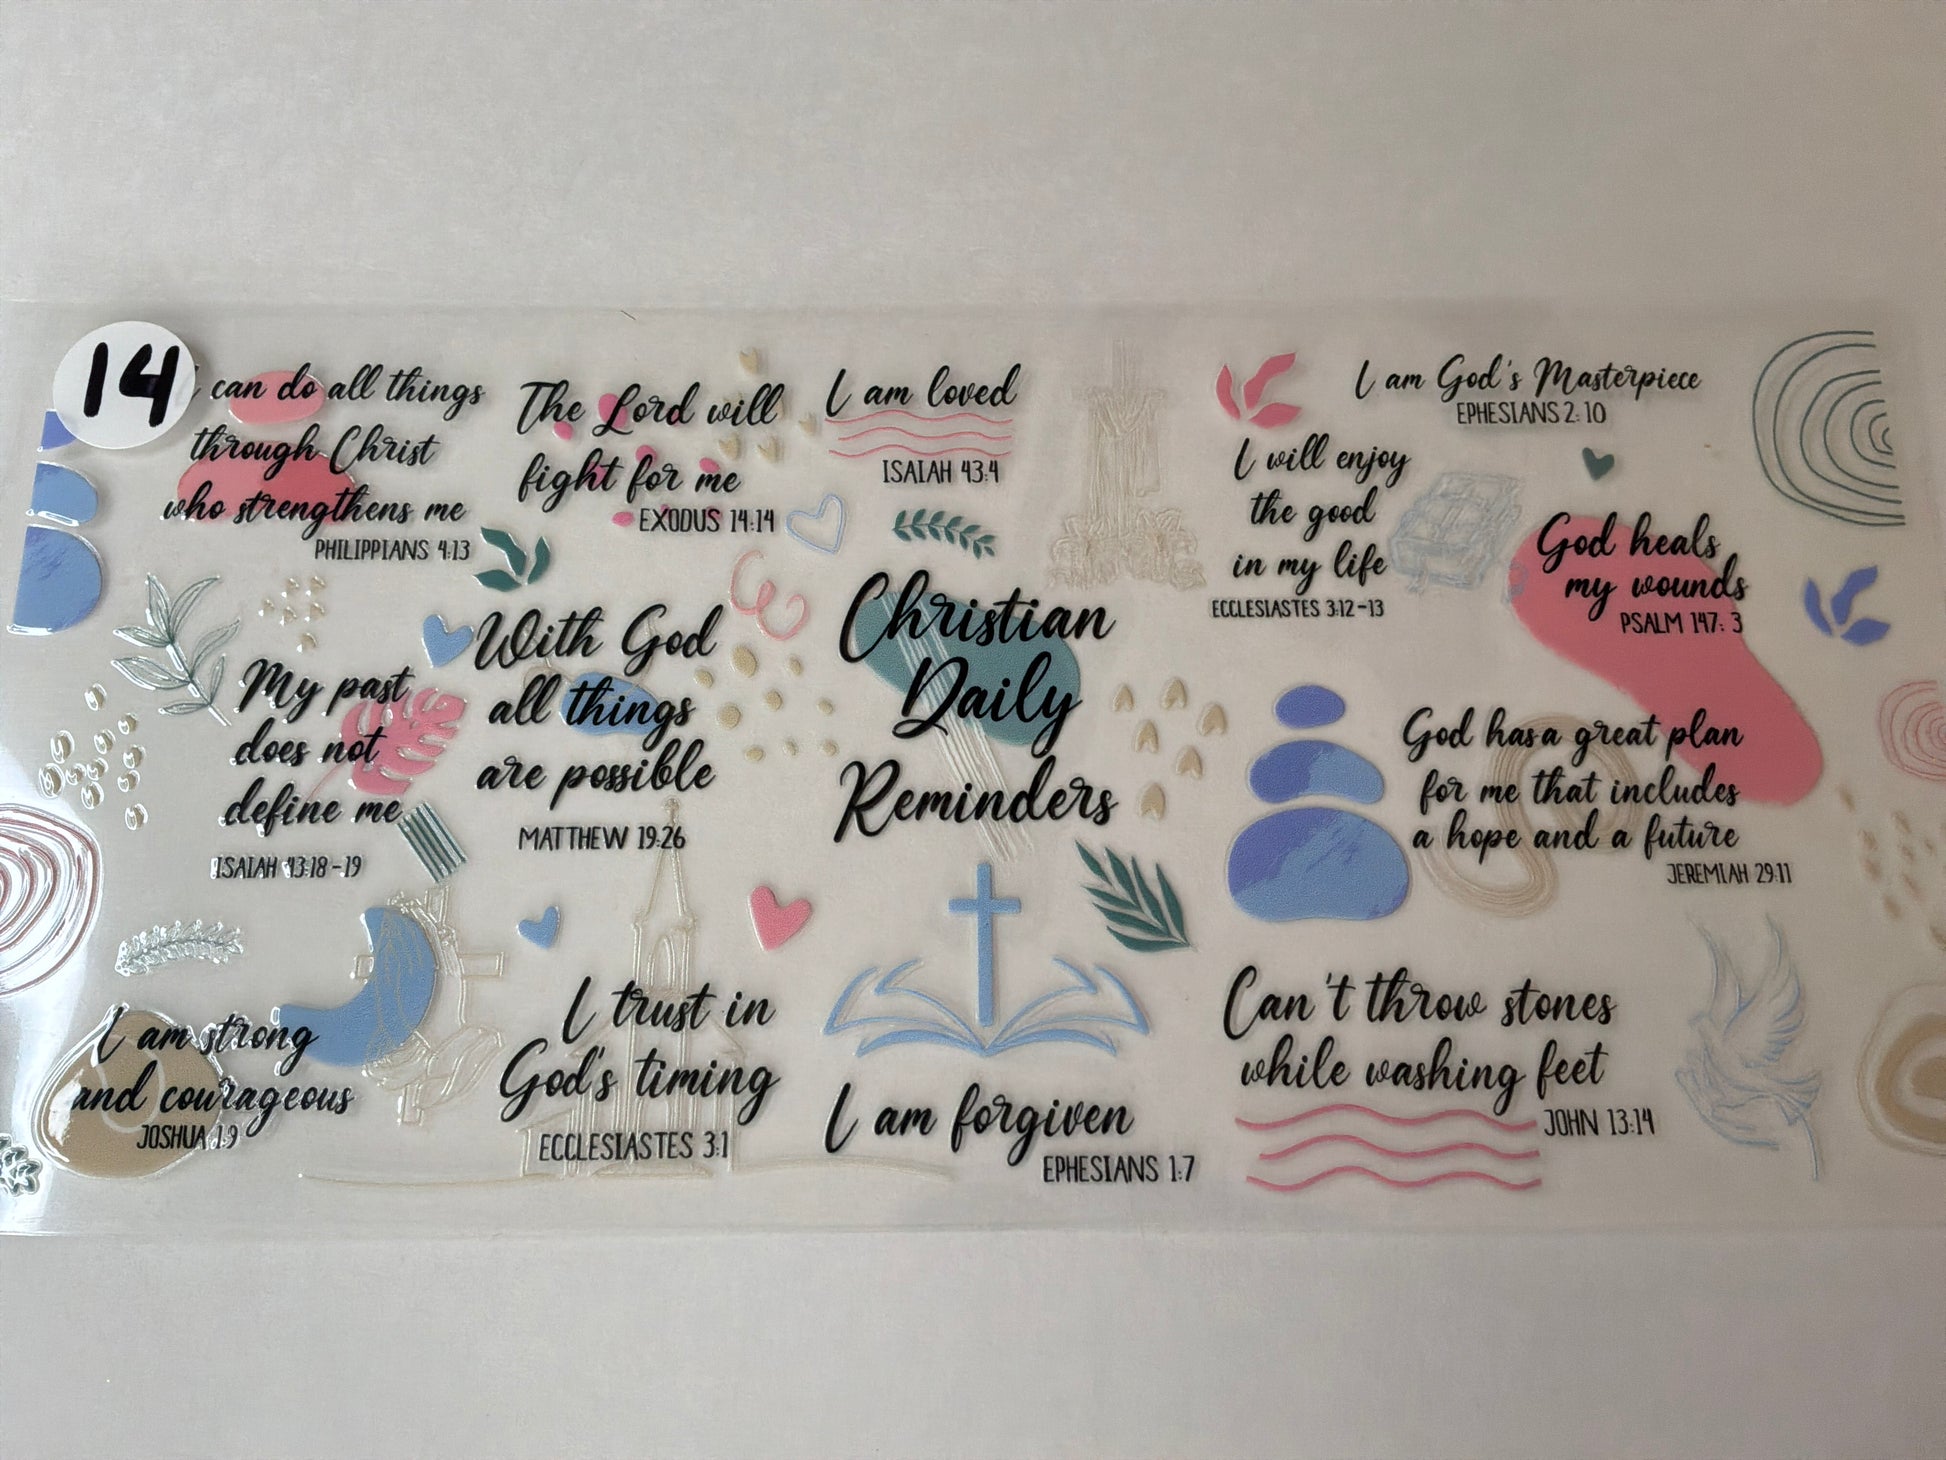 14
I can do all things
through Christ
who strengthens me
PHILIPPIANS 4:13
The Lord will
fight for me
EXODUS 14:14
I am loved
ISAIAH 43:4
I am God's Masterpiece
EPHESIANS 2:10
I will enjoy
the good
in my life
ECCLESIASTES 3:12-13
God heals
my wounds
PSALM 147:3
My past
does not
define me
ISAIAH 43:18-19
With God
all things
are possible
MATTHEW 19:26
Christian
Daily
Reminders
God has a great plan
for me that includes
a hope and a future
JEREMIAH 29:11
I am strong
and courageous
JOSHUA 1:9
I trust in
God's timing
ECCLESIASTES 3:1
I am forgiven
EPHESIANS 1:7
Can't throw stones
while washing feet
JOHN 13:14